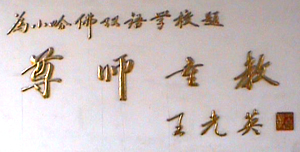 为小哈佛双语学校题
尊师重教
王光英